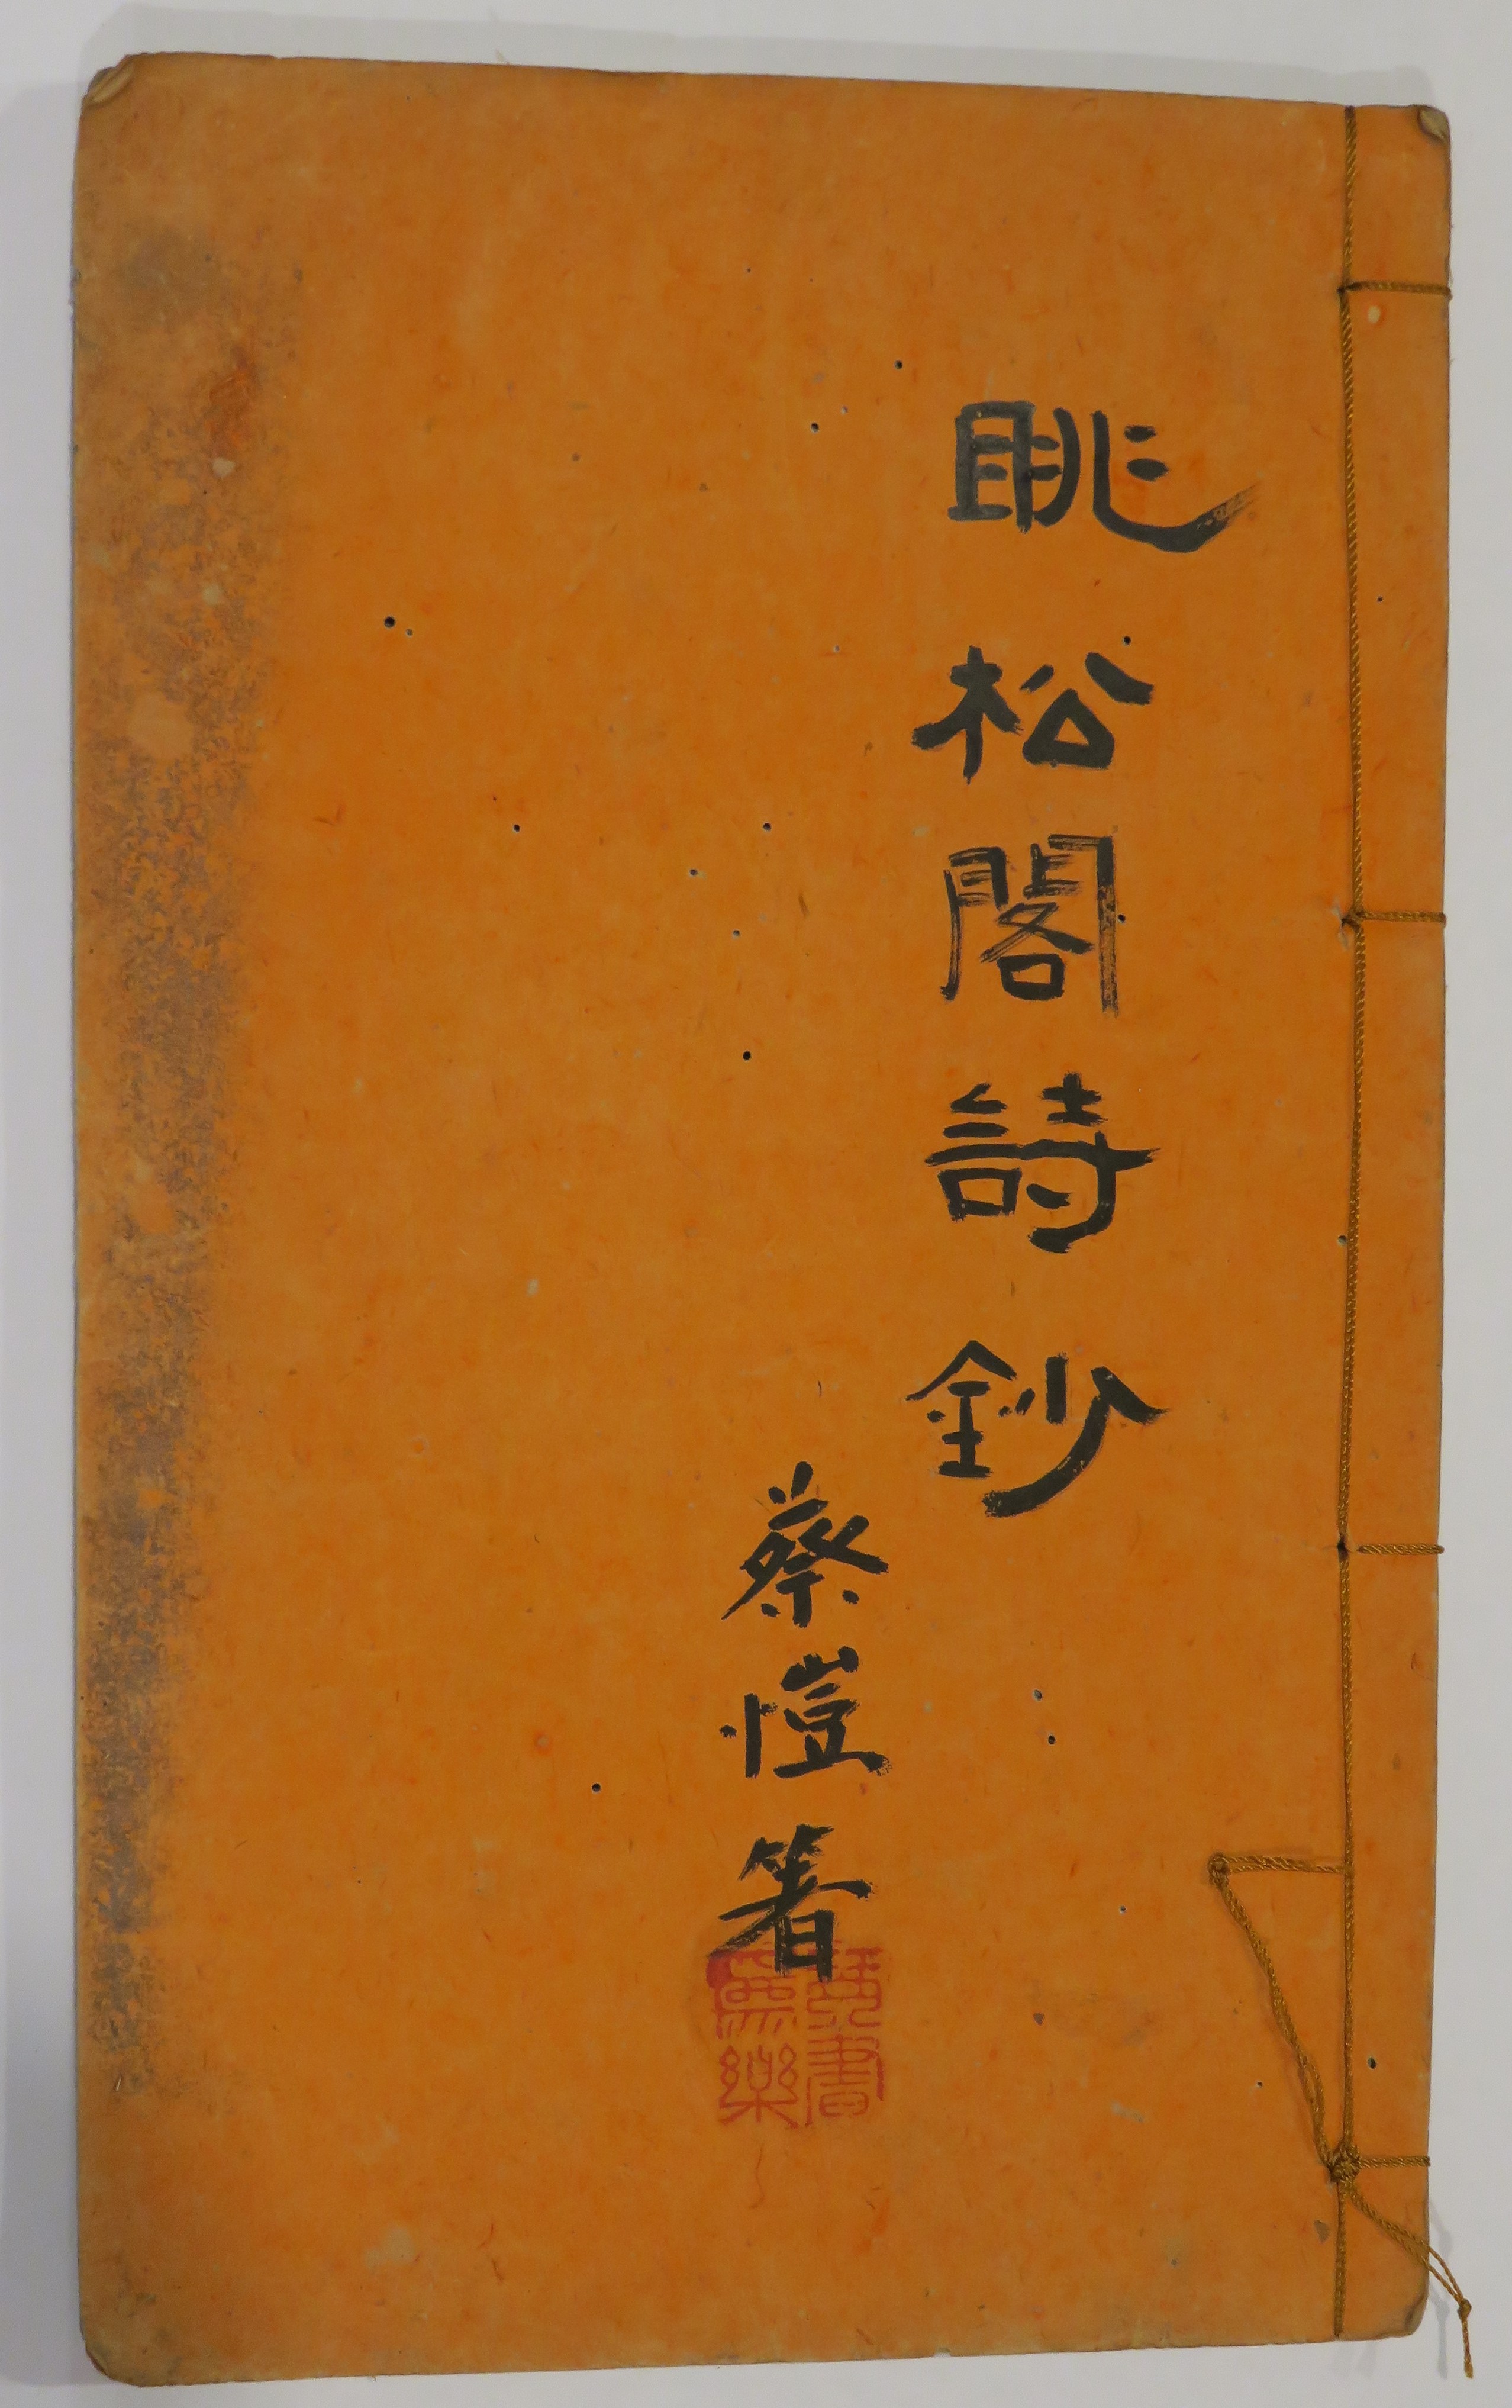 眺松閣詩鈔
蔡愷箸
書爲樂